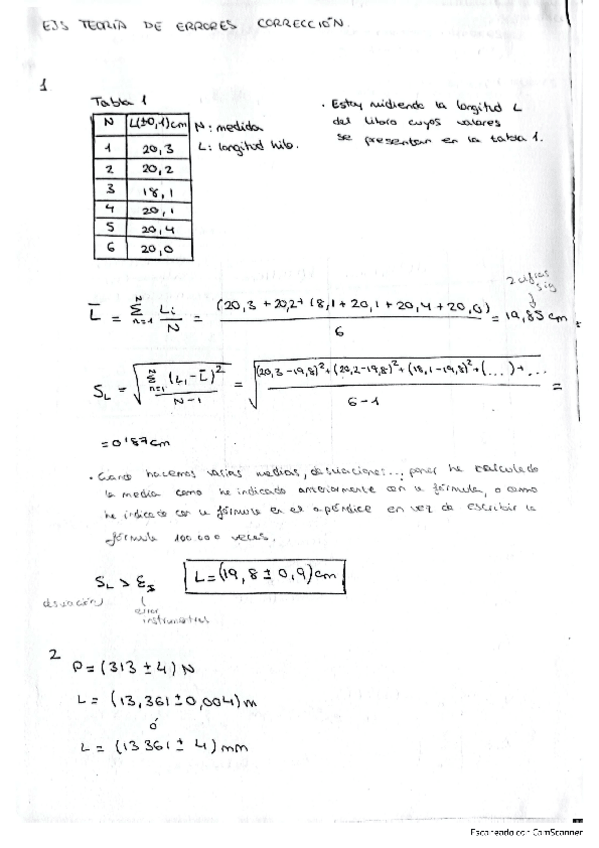 EJS TEORÍA DE ERRORES CORRECCIÓN.
1
Tabla 1
N L(±0,1)cm
1 20,3
2 20,2
3 18,1
4 20,1
5 20,4
6 20,0
N: medida
L: longitud hilo.
· Estoy midiendo la longitud L
del libro cuyos valores
se presentan en la tabla 1.
2 cifras
sig
L̄ = Σ_{n=1}^{N} Li/N = (20,3 + 20,2 + 18,1 + 20,1 + 20,4 + 20,0)/6 = 19,85 cm
S_L = √(Σ_{n=1}^{N} (Li - L̄)²/(N-1)) = √(((20,3 - 19,8)² + (20,2 - 19,8)² + (18,1 - 19,8)² + (...) + ...)/(6-1)) =
= 0'87cm
· Cuando hacemos varias medias, desviaciones... poner he calculado
la media como he indicado anteriormente con la fórmula, o como
he indicado con la fórmula en el apéndice en vez de escribir la
fórmula 100.000 veces.
S_L > ε_I
L = (19,8 ± 0,9)cm
desviación
error
2
P = (313 ± 4) N
L = (13,361 ± 0,004) m
ó
L = (13 361 ± 4) mm
Escaneado con CamScanner